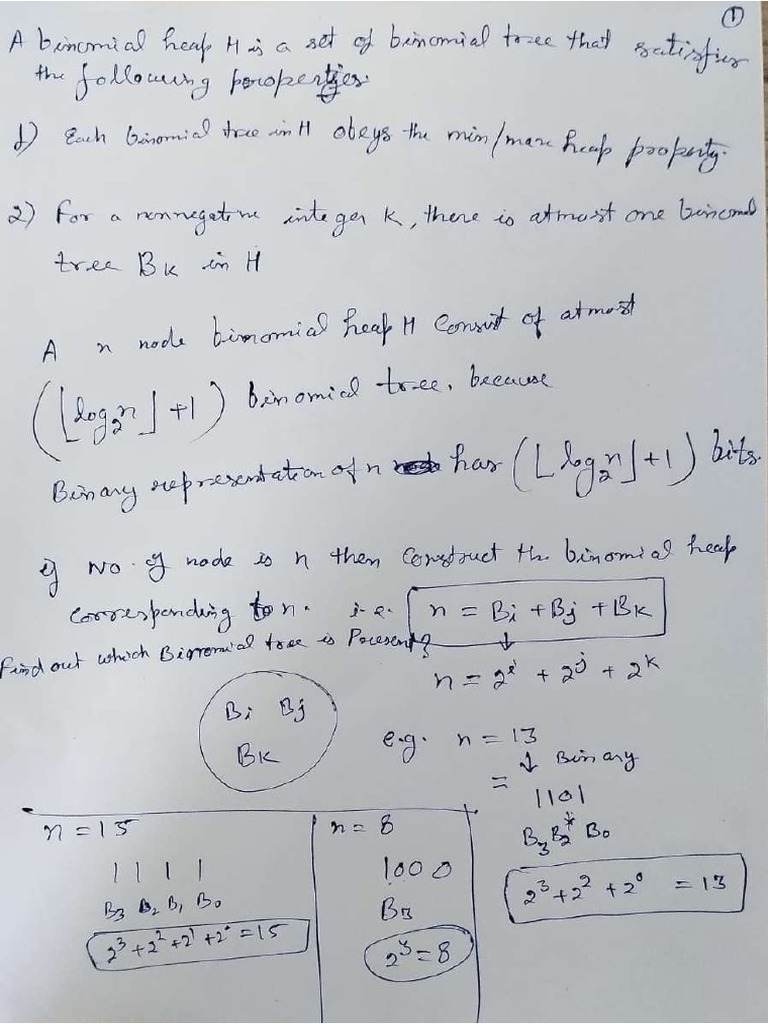 ①
A binomial heap H is a set of binomial tree that satisfies
the following properties.
1) Each binomial tree in H obeys the min/max heap property.
2) For a nonnegative integer K, there is atmost one binomial
tree BK in H
A n node binomial heap H Consist of atmost
(⌊log₂n⌋ +1) binomial tree, because
Binary representation of n has (⌊log₂n⌋+1) bits.
if No. of node is n then Construct the binomial heap
corresponding to n. i.e. n = Bi + Bj + BK
Find out which Binomial tree is Present?
↓
n = 2ⁱ + 2ʲ + 2ᵏ
Bi Bj
BK
e.g. n = 13
↓ Binary
= 1101
B₃B₂* B₀
2³+2²+2⁰ = 13
n = 15
1 1 1 1
B₃ B₂ B₁ B₀
2³+2²+2¹+2⁰ = 15
n = 8
1000
B₃
2³=8